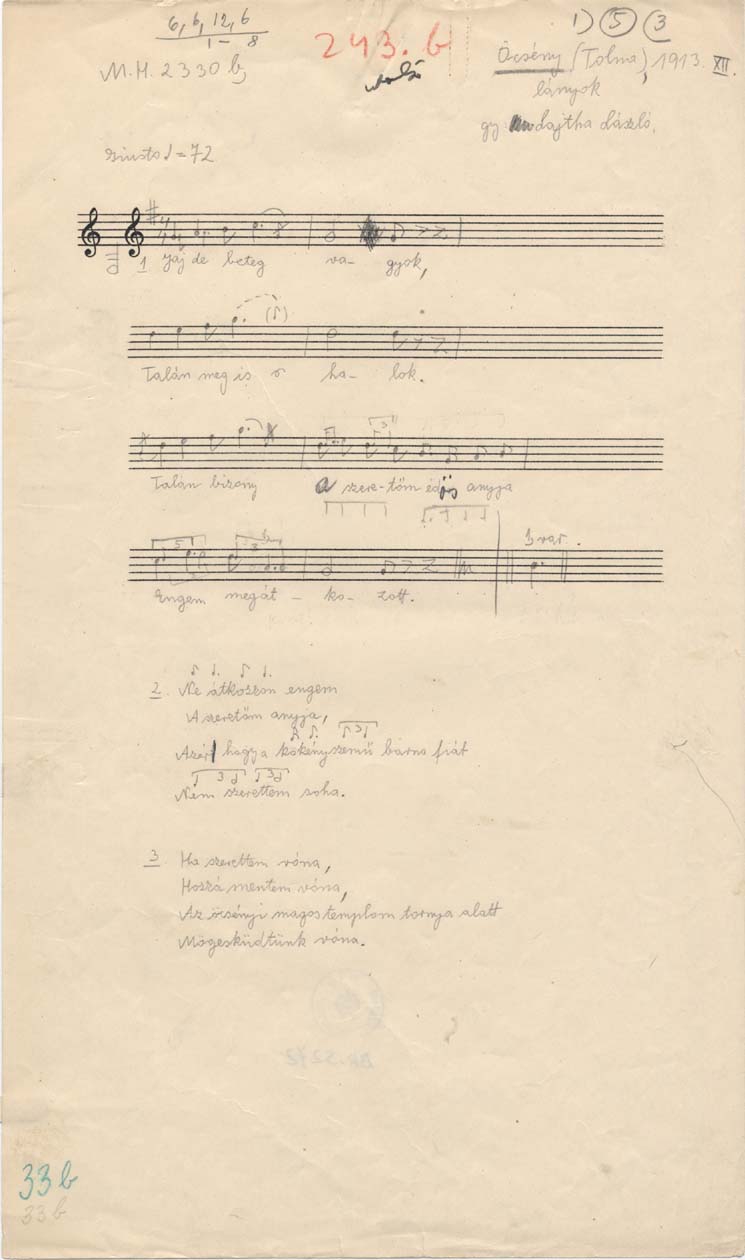 6, 6, 12, 6
1 – 8
243. b
1) 5 3
M.H. 2330 b,
Őcsény (Tolna), 1913. XII.
lányok
gy Lajtha László.
giusto = 72
1 Jaj de beteg va- gyok,
Talán meg is ha- lok.
Talán bizony a szere-töm édös anyja
3 var.
Engem megát - ko- zott.
2. Ne átkozzon engem
A szeretőm anyja,
Azér hogya kökényszemű barna fiát
Nem szerettem soha.
3 Ha szerettem vóna,
Hozzá mentem vóna,
Az őcsényi magos templom tornya alatt
Mögesküdtünk vóna.
33 b
33 b